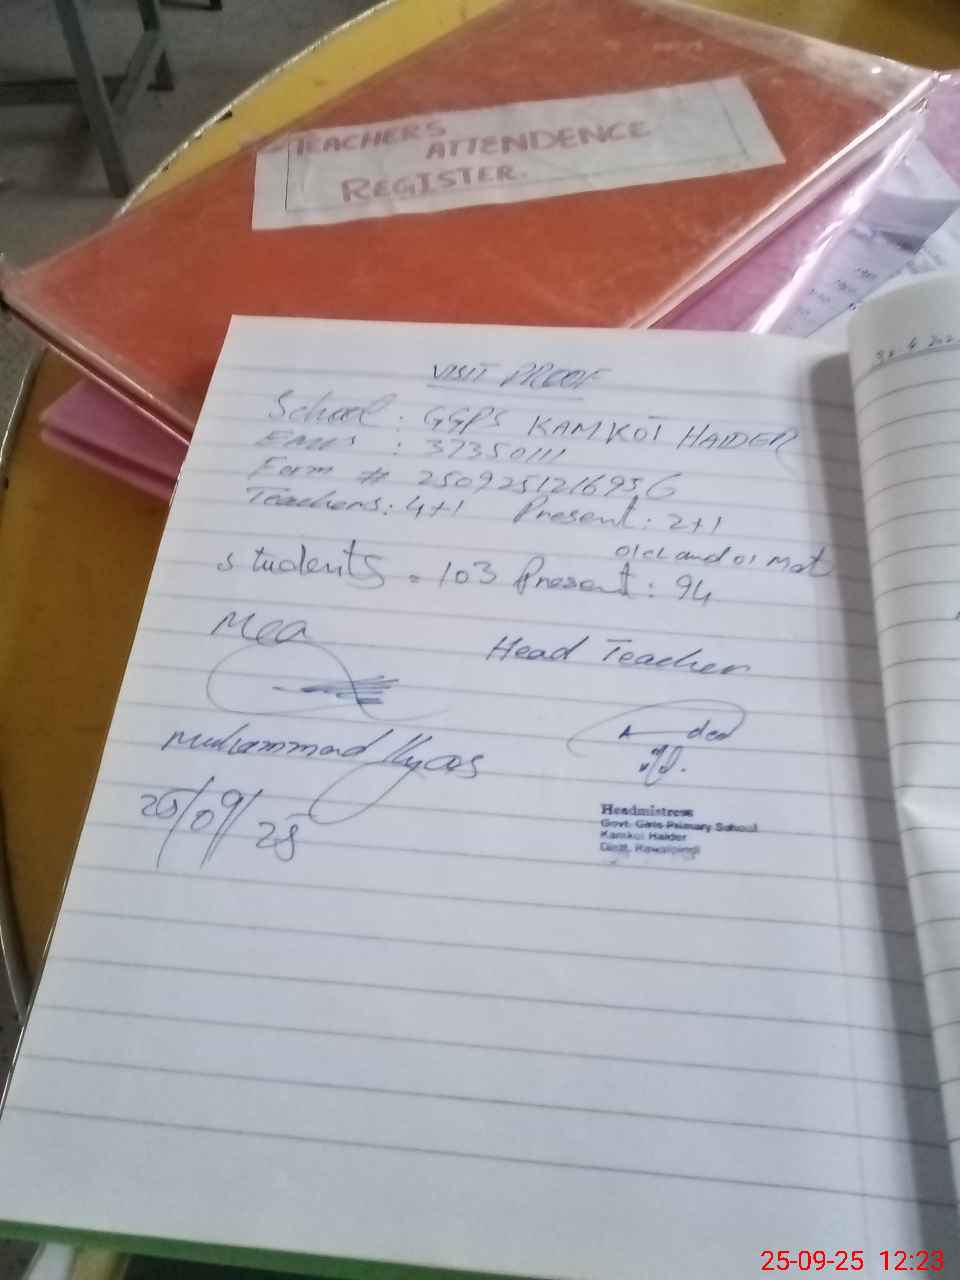 TEACHERS
ATTENDENCE
REGISTER.
VISIT PROOF
School : GGPS KAMKOI HAIDER
EMIS : 37350111
Form # 2509251216956
Teachers: 4+1 Present: 2+1
01 CL and 01 Mat
Students = 103 Present: 94
Mea
Head Teacher
Muhammad Ilyas
25/09/25
Headmistress
Govt. Girls Primary School
Kamkoi Haider
Distt. Rawalpindi
25-09-25 12:23